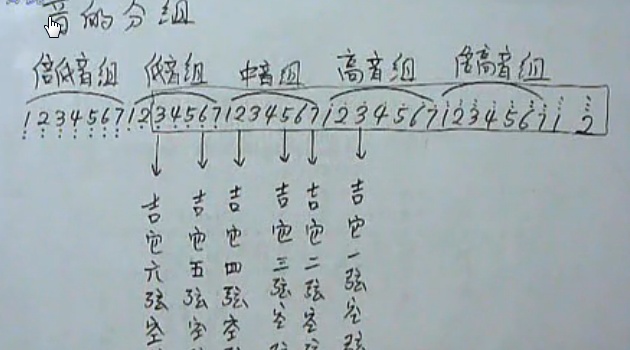 音的分组
倍低音组 低音组 中音组 高音组 倍高音组
1 2 3 4 5 6 7 1 2 3 4 5 6 7 1 2 3 4 5 6 7 1 2 3 4 5 6 7 1 2 3 4 5 6 7 1 2
吉它六弦空
吉它五弦空
吉它四弦空
吉它三弦空弦
吉它二弦空弦
吉它一弦空弦